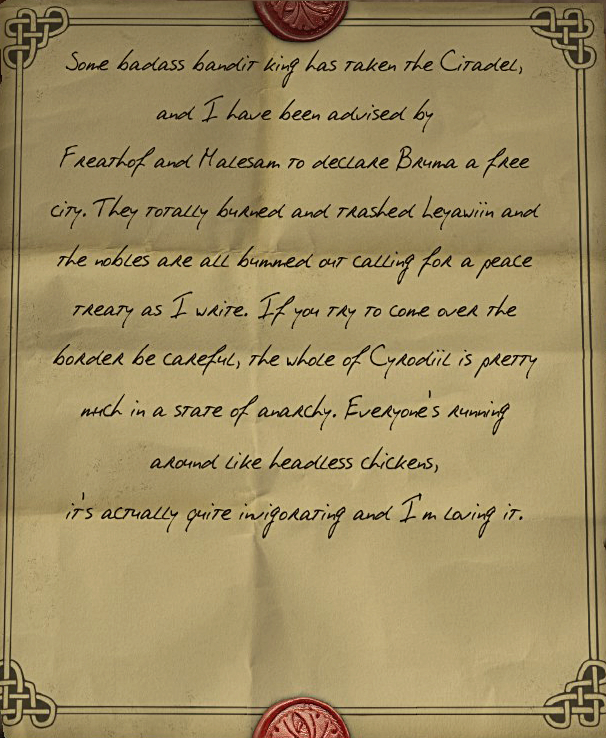 Some badass bandit king has taken the Citadel,
and I have been advised by
Freathof and Malesam to declare Bruma a free
city. They totally burned and trashed Leyawiin and
the nobles are all bummed out calling for a peace
treaty as I write. If you try to come over the
border be careful, the whole of Cyrodiil is pretty
much in a state of anarchy. Everyone's running
around like headless chickens,
it's actually quite invigorating and I'm loving it.